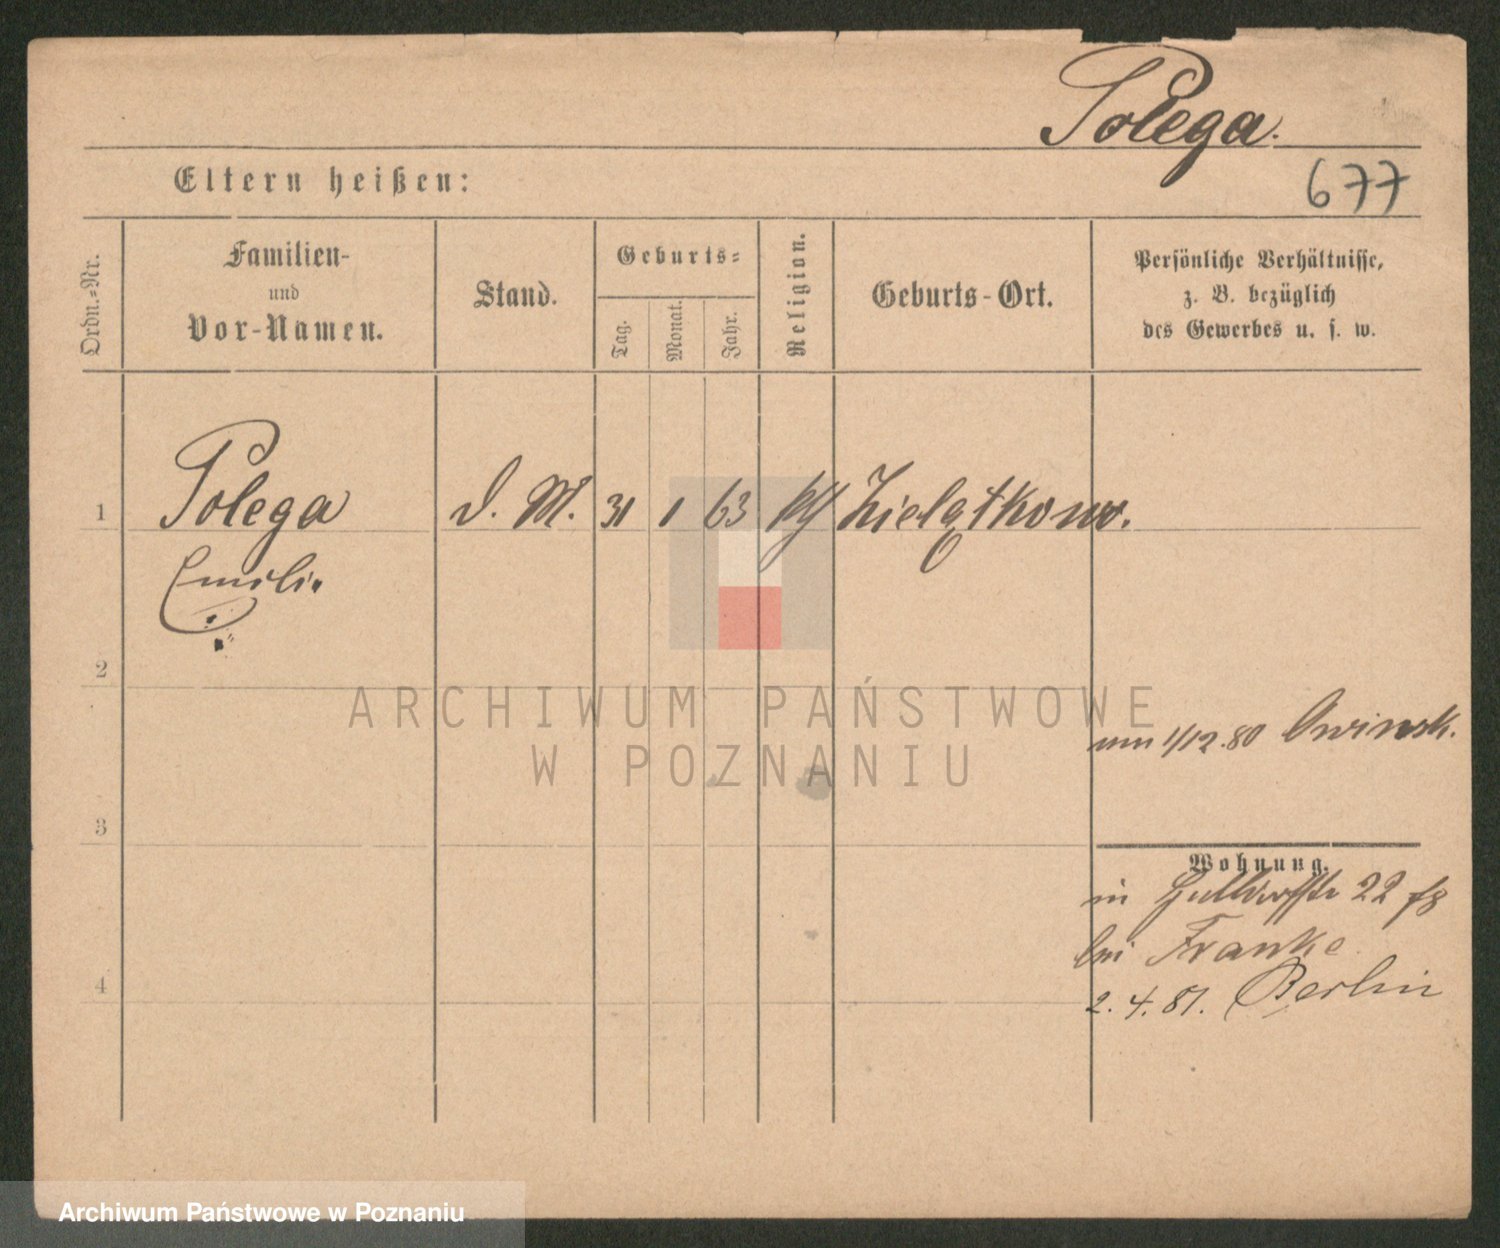 Polega.
Eltern heißen:
677
Ordn.-Nr.
Familien-
und
Vor-Namen.
Stand.
Geburts-
Tag.
Monat.
Jahr.
Religion.
Geburts-Ort.
Persönliche Verhältnisse,
z. B. bezüglich
des Gewerbes u. s. w.
1
Polega
D. M. 31 1 63 Zielątkowo.
Emilie
2
1/12.80 Owinsk.
3
Wohnung.
in 22
bei Franke
4
2.4.81. Berlin
ARCHIWUM PAŃSTWOWE
W POZNANIU
Archiwum Państwowe w Poznaniu